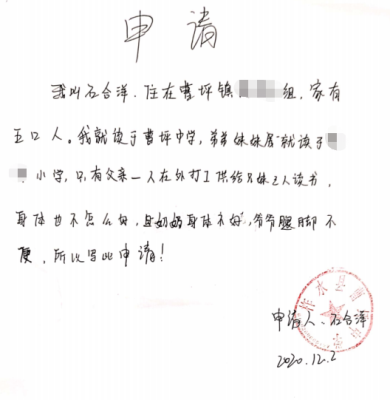 申请
我叫石合洋.住在曹坪镇 组,家有
五口人。我就读于曹坪中学,弟弟妹妹 就读于
小学,只有父亲一人在外打工供给兄妹三人读书,
身体也不怎么好,且奶奶身体不好,爷爷腿脚不
便,所以写此申请!
申请人:石合洋
2020.12.2
柞水县